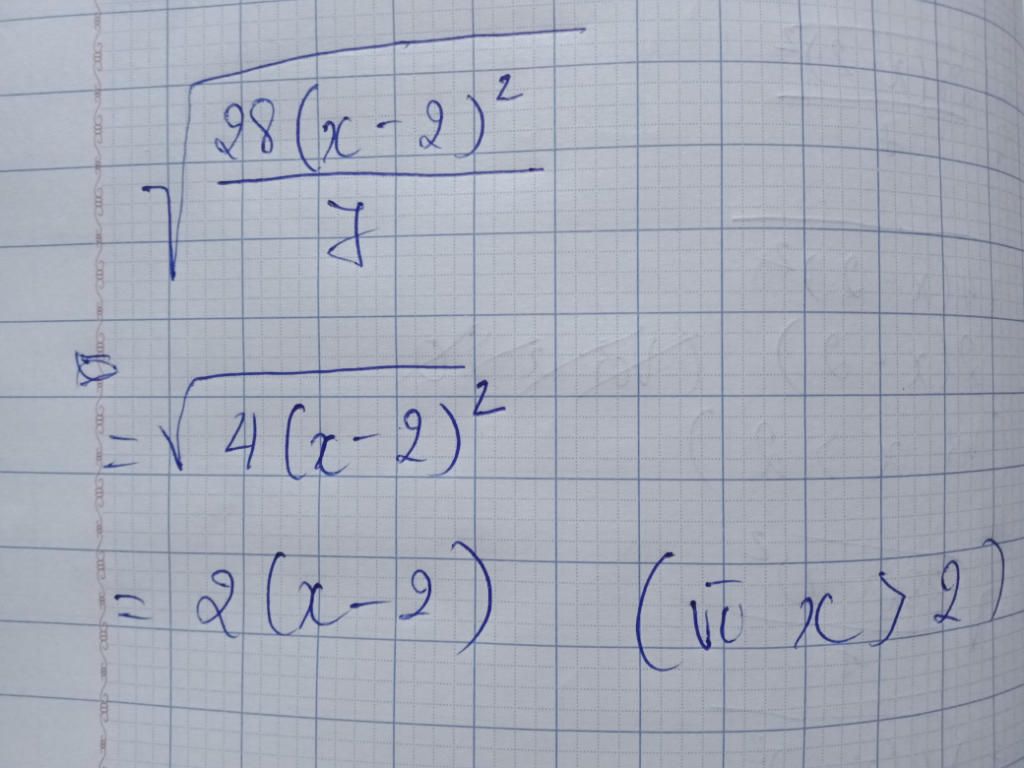 √(28(x - 2)²/7)
= √(4(x - 2)²)
= 2(x - 2) (vì x > 2)